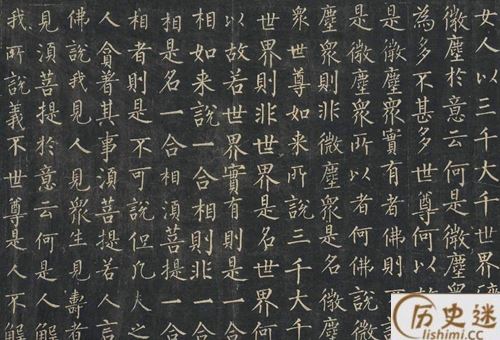 女人以三千大千世界
微塵於意云何是微塵衆
為多不甚多世尊何以
是微塵衆實有者佛則
是微塵衆所以者何佛說微
塵衆則非微塵衆是名微塵
衆世尊如来所說三千大千
世界則非世界是名世界何
以故若世界實有則是一合
相如来說一合相則非一合
相是名一合相須菩提一合
相者則是不可說但凡夫之
人貪著其事須菩提若人言
佛說我見人見衆生見壽者
見須菩提於意云何是人解
我所說義不世尊是人不解
历史迷
lishimi.cc